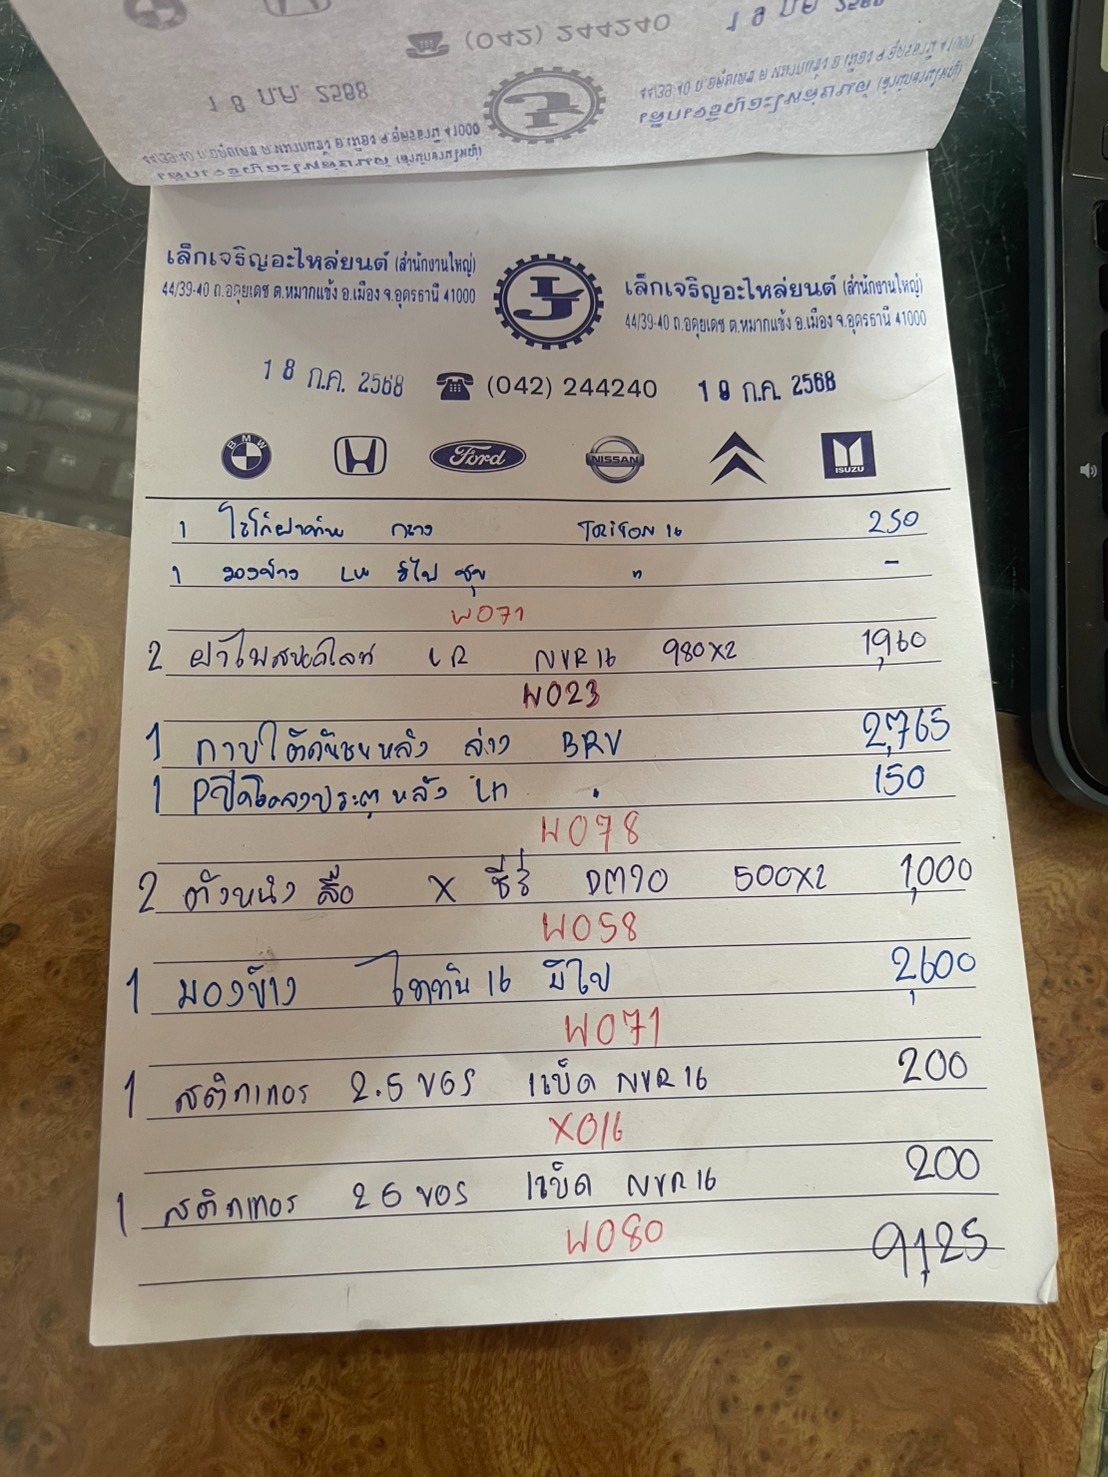 (042) 244240
18 ก.ค. 2568
เล็กเจริญอะไหล่ยนต์ (สำนักงานใหญ่)
44/39-40 ถ.อดุยเดช ต.หมากแข้ง อ.เมือง จ.อุดรธานี 41000
เล็กเจริญอะไหล่ยนต์ (สำนักงานใหญ่)
44/39-40 ถ.อดุยเดช ต.หมากแข้ง อ.เมือง จ.อุดรธานี 41000
18 ก.ค. 2568 (042) 244240 19 ก.ค. 2568
BMW Ford NISSAN ISUZU
1 โลโก้ฝาท้าย กลาง TRITON 16 250
1 มองข้าง LH ชุบ " -
W071
2 ฝาไฟสปอตไลท์ LR NVR 16 980X2 1,960
W023
1 กาบใต้กันชนหลัง ล่าง BRV 2,765
1 ประตู หลัง " 150
W078
2 X ซีรี่ DM90 500X2 1,000
W058
1 มองข้าง ไททัน 16 มีไฟ 2,600
W071
1 สติกเกอร์ 2.5 VGS NVR 16 200
X016
1 สติกเกอร์ NVR 16 200
W080
9,125